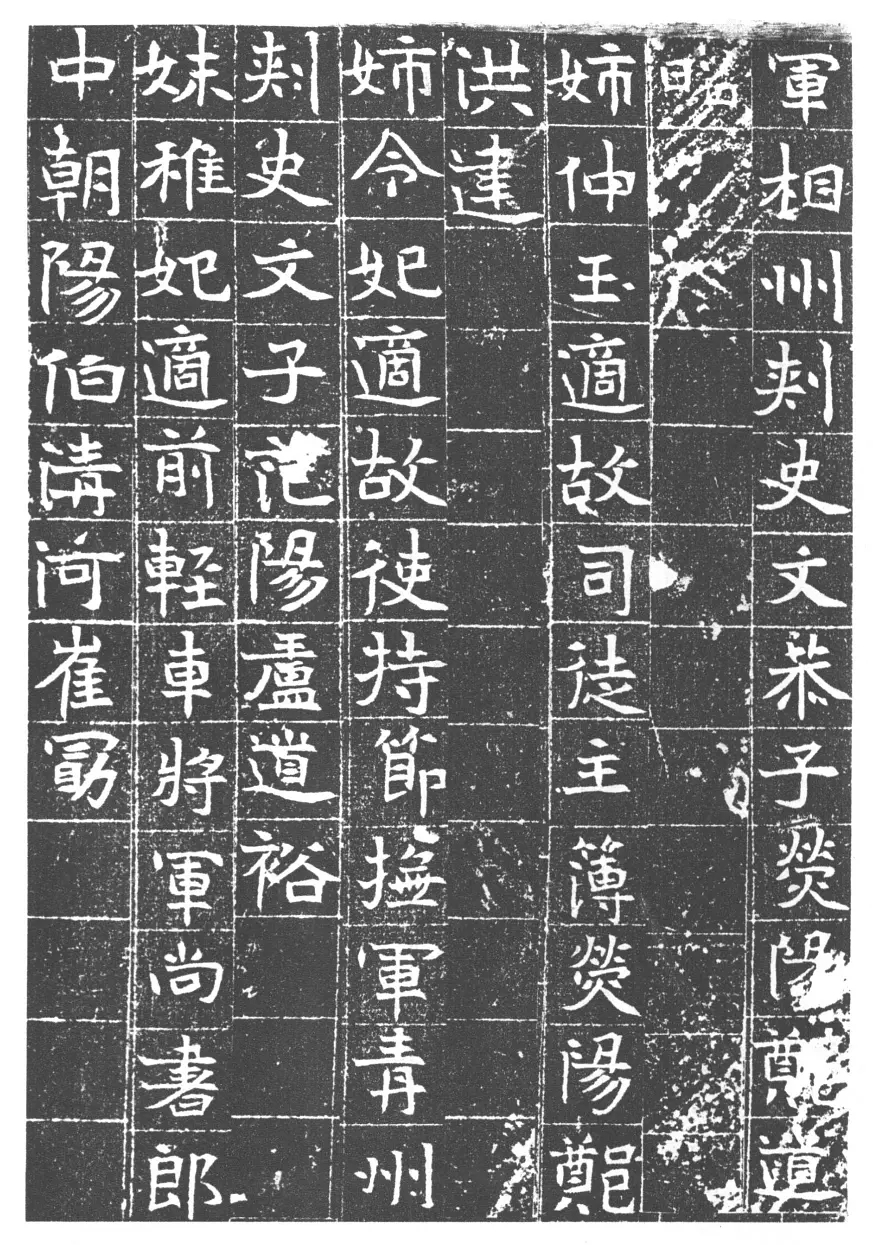 軍相州刺史文恭子熒陽鄭道
昭
姉仲玉適故司徒主簿熒陽鄭
洪建
姉令妃適故使持節撫軍青州
刾史文子范陽盧道裕
妹稚妃適前輕車將軍尚書郎
中朝陽伯清河崔勗